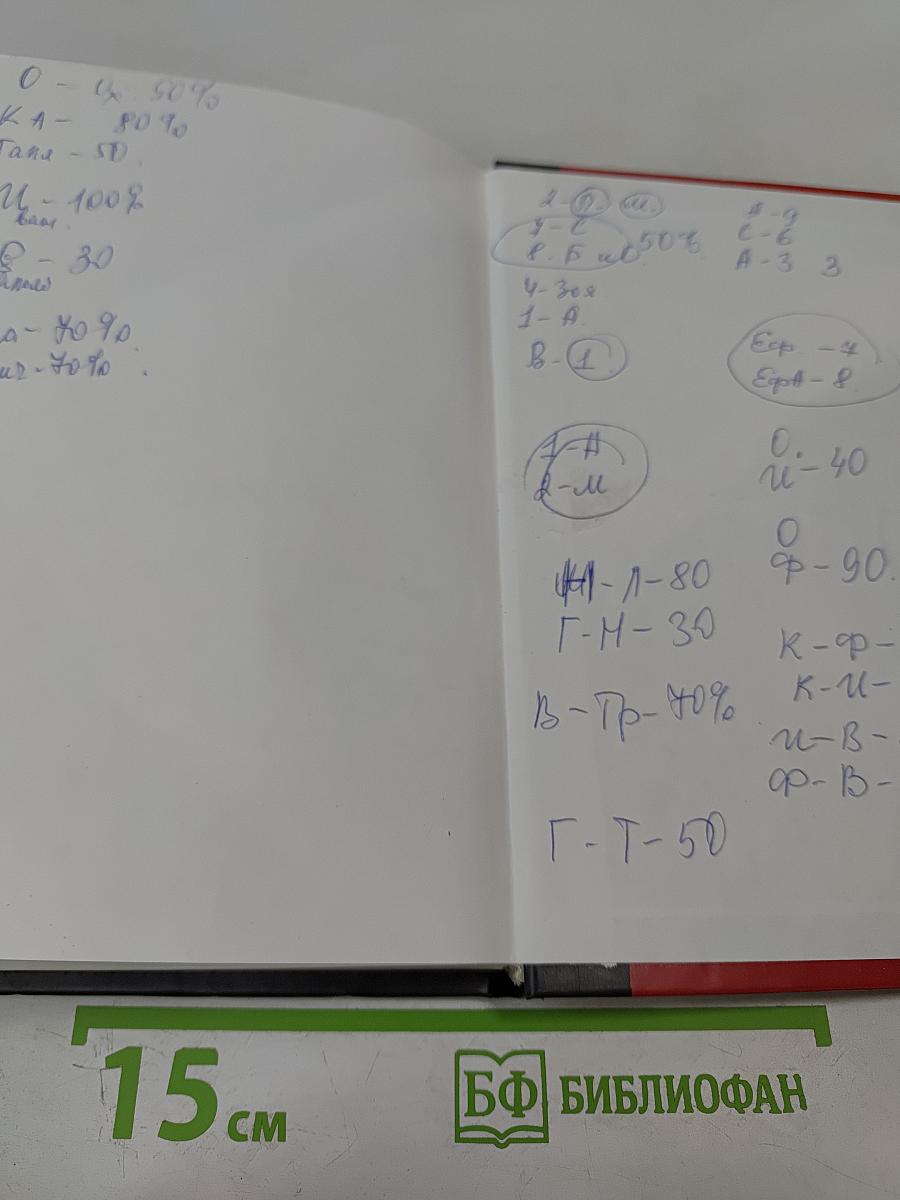 О - 50%
КА - 80%
Галя - 50.
И - 100%
- 30
- 70%.
- 70%.
2 - П. М.
7 - С
8. Б 50%
4 - Зоя
1 - А.
В - 1
1 - А
2 - М
- Л - 80
Г - Н - 30
В - Тр - 70%
Г - Т - 50
А - 9
С - 6
А - 3 3
Еср - 7
ЕсрА - 8.
О.
И - 40
О
Ф - 90.
К - Ф -
К - И -
И - В -
Ф - В -
15 см
БФ БИБЛИОФАН